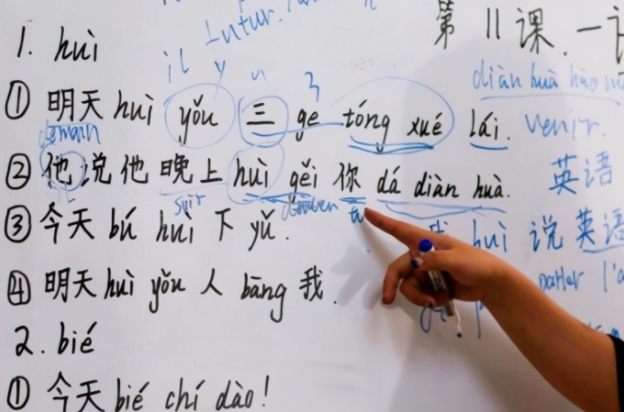 第 11 课. 一
futur.
1. huì
il y
diàn huà hào
① 明天 huì yǒu 三 ge tóng xué lái. venir.
demain
② 他说他晚上 huì gěi 你 dá diàn huà. 英语
soir
③ 今天 bú huì 下 yǔ. huì 说 英语
parler l'a
④ 明天 huì yǒu 人 bāng 我.
2. bié
① 今天 bié chí dào!